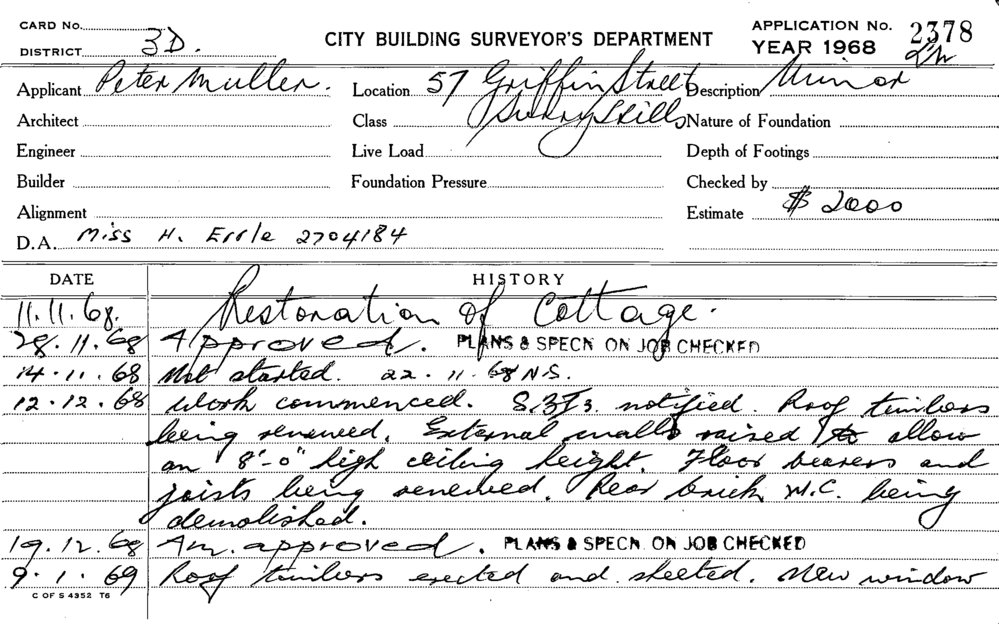 CARD No.
DISTRICT 3D.
CITY BUILDING SURVEYOR'S DEPARTMENT
APPLICATION No. 2378
YEAR 1968
Applicant Peter Muller. Location 57 Griffin Street Description Minor
Architect Class Surry Hills Nature of Foundation
Engineer Live Load Depth of Footings
Builder Foundation Pressure Checked by
Alignment Estimate $ 2000
D.A. Miss H. Errle 2704184
DATE HISTORY
11.11.68. Restoration of Cottage.
28.11.68 Approved. PLANS & SPECN ON JOB CHECKED
14.11.68 Not started. 22.11.68 N.S.
12.12.68 Work commenced. notified. Roof timbers
being renewed. External walls raised to allow
an 8'-0" high ceiling height. Floor bearers and
joists being renewed. Rear brick W.C. being
demolished.
19.12.68 Am. approved. PLANS & SPECN. ON JOB CHECKED
9.1.69 Roof timbers erected and sheeted. New window
C OF S 4352 T6